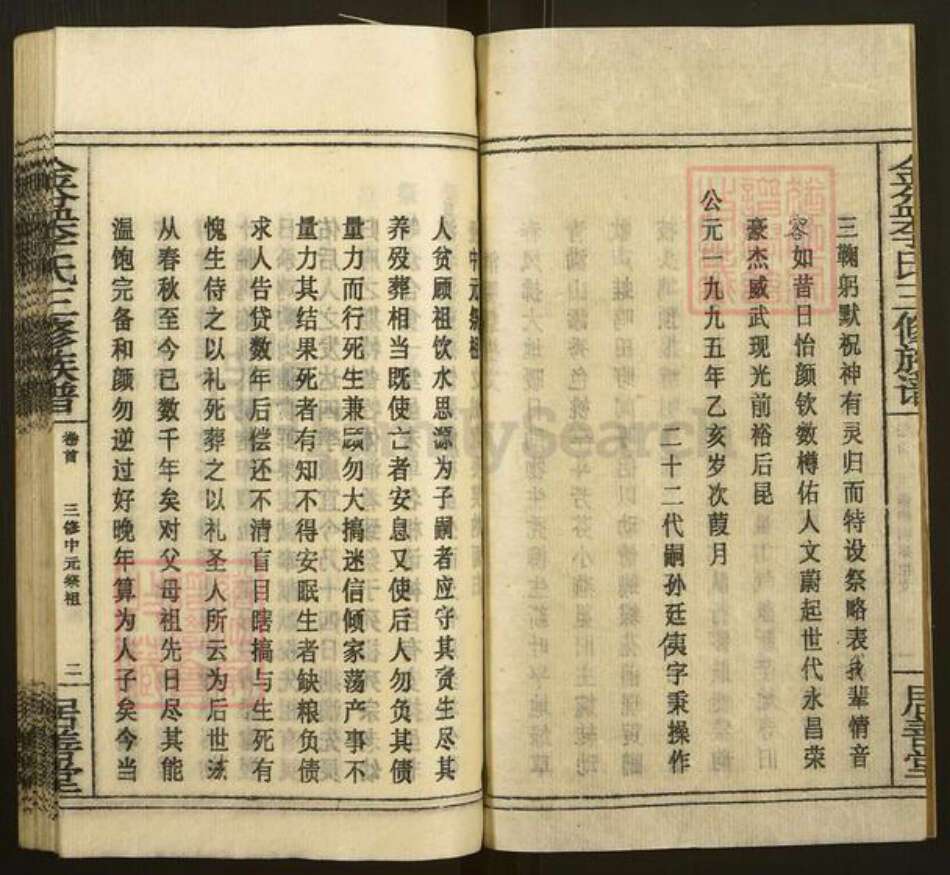 三鞠躬默祝神有灵归而特设祭略表我辈情音
容如昔日怡颜钦数樽佑人文蔚起世代永昌荣
豪杰威武现光前裕后昆
公元一九九五年乙亥岁次葭月
二十二代嗣孙廷侇字秉操作
人贫顾祖饮水思源为子嗣者应守其责生尽其
养殁葬相当既使亡者安息又使后人勿负其债
量力而行死生兼顾勿大搞迷信倾家荡产事不
量力其结果死者有知不得安眠生者缺粮负债
求人告贷数年后偿还不清盲目瞎搞与生死有
愧生侍之以礼死葬之以礼圣人所云为后世法
从春秋至今已数千年矣对父母祖先日尽其能
温饱完备和颜勿逆过好晚年算为人子矣今当
金盆李氏三修族谱
卷首
三修中元祭祖
二
居善堂